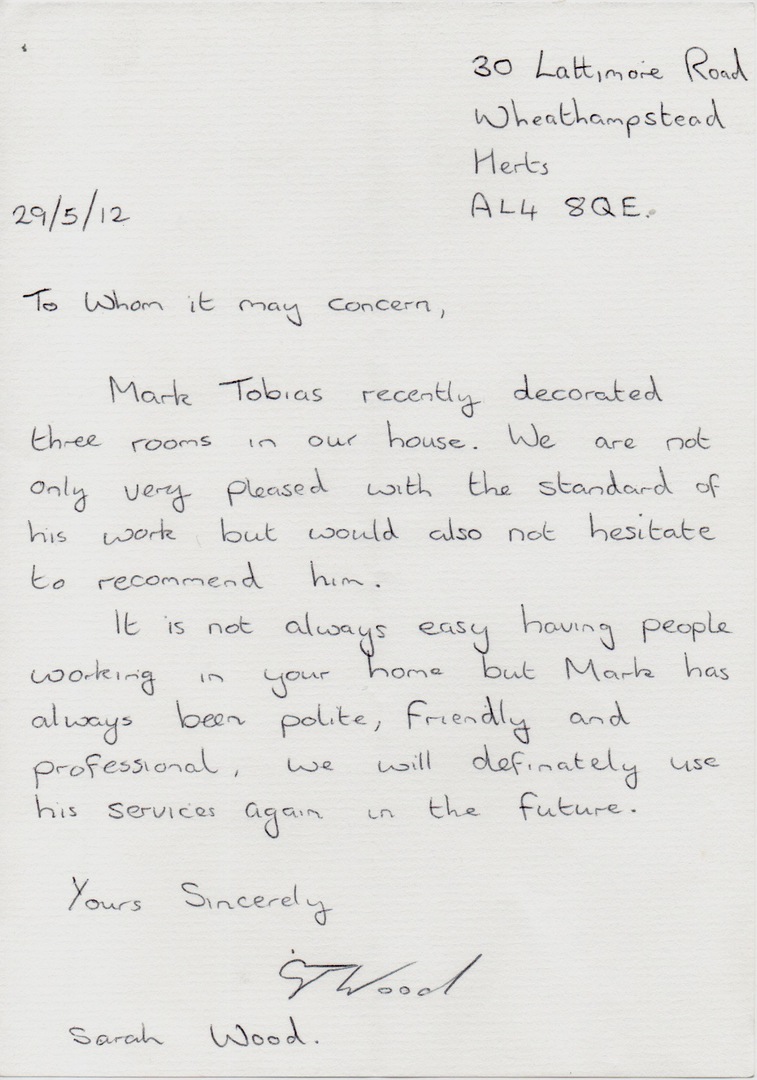 30 Lattimore Road
Wheathampstead
Herts
AL4 8QE.
29/5/12
To Whom it may concern,
Mark Tobias recently decorated
three rooms in our house. We are not
only very pleased with the standard of
his work but would also not hesitate
to recommend him.
It is not always easy having people
working in your home but Mark has
always been polite, friendly and
professional, we will definately use
his services again in the future.
Yours Sincerely
SJWood
Sarah Wood.